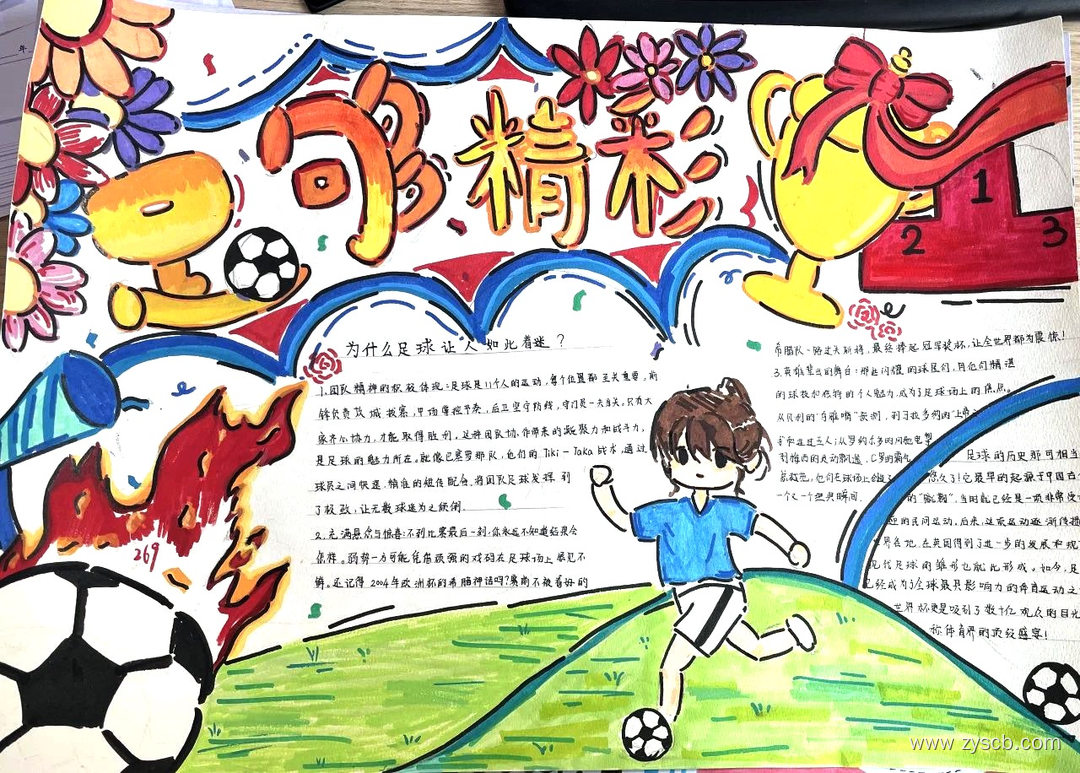 足够精彩
1
2
3
为什么足球让人如此着迷?
1.团队精神的极致体现:足球是11个人的运动,每个位置都至关重要,前
锋负责攻城拔寨,中场掌控节奏,后卫坚守防线,守门员一夫当关.只有大
家齐心协力,才能取得胜利.这种团队协作带来的凝聚力和战斗力,
是足球的魅力所在.就像巴塞罗那队,他们的Tiki-Taka战术,通过
球员之间快速、精准的短传配合,将团队足球发挥到
了极致,让无数球迷为之倾倒.
2.充满悬念与惊喜:不到比赛最后一刻,你永远不知道结果会
怎样。弱势一方可能凭借顽强的在足球场上屡见不
鲜。还记得2004年欧洲杯的希腊神话吗?赛前不被看好的
希腊队一路过关斩将,最终捧起冠军奖杯,让全世界都为震惊!
3.英雄辈出的舞台:那些闪耀的球星们,用他们精湛
的球技和独特的个人魅力,成为了足球场上的焦点。
从贝利的
到梅西的灵动飘逸,C罗的霸气
他们在球场上
一个又一个经典瞬间.
足球的历史那可相当
悠久了!它最早的起源于中国古
的"蹴鞠",当时就已经是一项非常受
迎的民间运动.后来,这项运动逐渐传播
世界各地,在英国得到了进一步的发展和规
现代足球的雏形也就此形成。如今,足
已经成为了全球最具影响力的体育运动之
世界杯更是吸引了数十亿观众的目光
称体育界的顶级盛宴!
269
www.zyscb.com